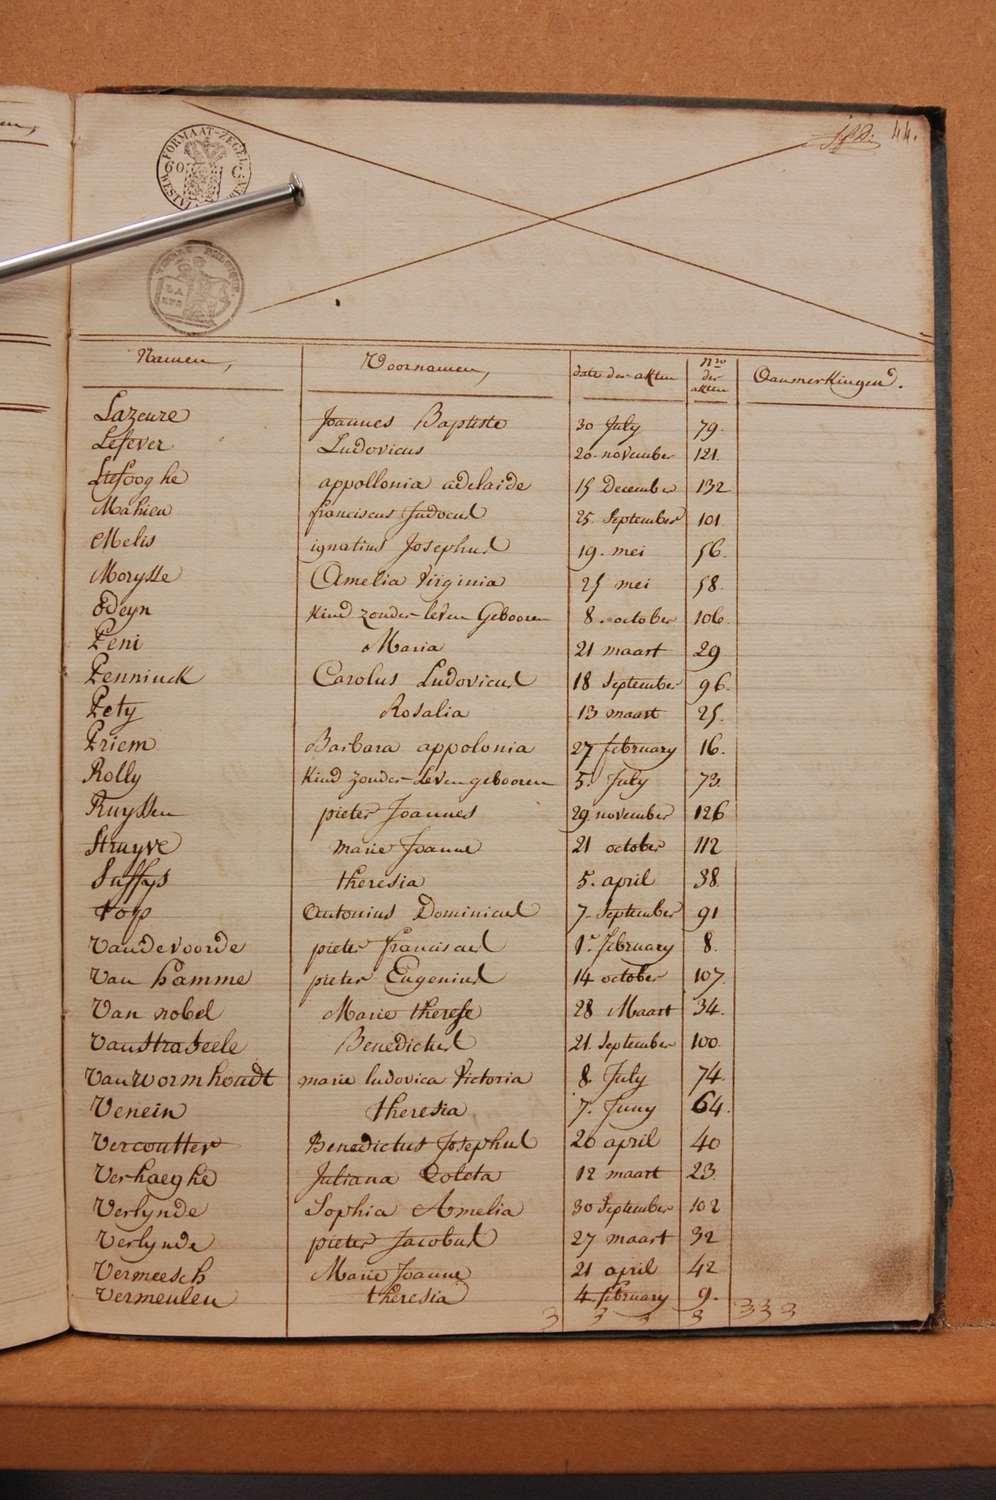 44.
FORMAAT-ZEGEL
60 C
Namen, Voornamen, date der akten Nro der akten Aanmerkingen.
Lazeure Joannes Baptiste 30 July 79.
Lefever Ludovicus 20 november 121.
Liefooghe appollonia adelaide 15 December 132
Mahieu franciscus Judocus 25. September 101.
Melis ignatius Josephus 19. mei 56.
Morysse Amelia Virginia 25 mei 58.
Odeyn Kind zonder leven Gebooren 8. october 106.
Peni Maria 21 maart 29
Penninck Carolus Ludovicus 18 September 96.
Pety Rosalia 13 maart 25.
Priem Barbara appolonia 27 february 16.
Rolly Kind zonder leven gebooren 5. July 73.
Ruyssen pieter Joannes 29 november 126
Struyve marie Joanne 21 october 112
Suffys theresia 5. april 38.
top Antonius Dominicus 7. September 91
Vandevoorde pieter franciscus 1r february 8.
Van hamme pieter Eugenius 14 october 107.
Van robel Marie therese 28 Maart 34.
Vanstraseele Benedictus 21. September 100.
Vanwormhoudt marie ludovica Victoria 8 July 74.
Venein theresia 7. Juny 64.
Vercoutter Benedictus Josephus 20 april 40
Verhaeghe Juliana Coleta 12 maart 23.
Verlynde Sophia Amelia 30 September 102
Verlynde pieter Jacobus 27 maart 32
Vermeesch Marie Joanne 21 april 42
Vermeulen theresia 4. february 9.
3 3 3 3 3 3 3